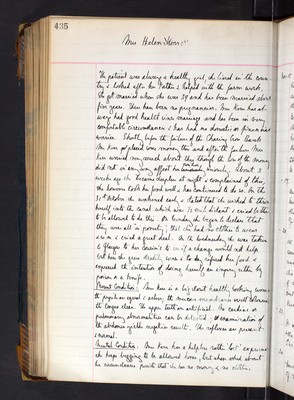 435
Mrs Helen
The patient was always a healthy girl, she lived in the coun-
try & looked after her Father & helped with the farm work.
She got married when she was 29 and has been married about
five years. There have been no pregnancies. Mrs has al-
ways had good health since marriage and has been in very
comfortable circumstances & has had no domestic or financial
worries. Shortly before the failure of the Charing Cross Bank
Mrs placed some money there and after the failure Mrs
worried very much about this though the loss of the money
did not in any way affect her position. About 3
weeks ago she became sleepless at night & complained of this,
she however took her food well & has continued to do so. On the
31st October she awakened early & stated that she wished to throw
herself into the canal which was 1/2 mile distant & cried bitterly
to be allowed to do this. On Sunday she began to declare that
they were all in poverty, that she had no clothes to wear
& cried a great deal. On the Wednesday she was taken
to Glasgow to her cousin's to see if a change would not help
her but she grew steadily worse & to-day refused her food &
expressed the intention of doing herself an injury either by
poison or a knife.
Present Condition: Mrs is a big stout healthy looking woman
the pupils are equal & active, the mucous membranes well coloured
the tongue clean. The upper teeth are artificial. No cardiac or
pulmonary abnormalities can be detected & examination of
the abdomen yields negative results. The reflexes are present
& normal.
Mental Condition: Mrs has a helpless rather "lost" expression
she keeps begging to be allowed home, but when asked about
her circumstances insists that she has no money & no clothes.